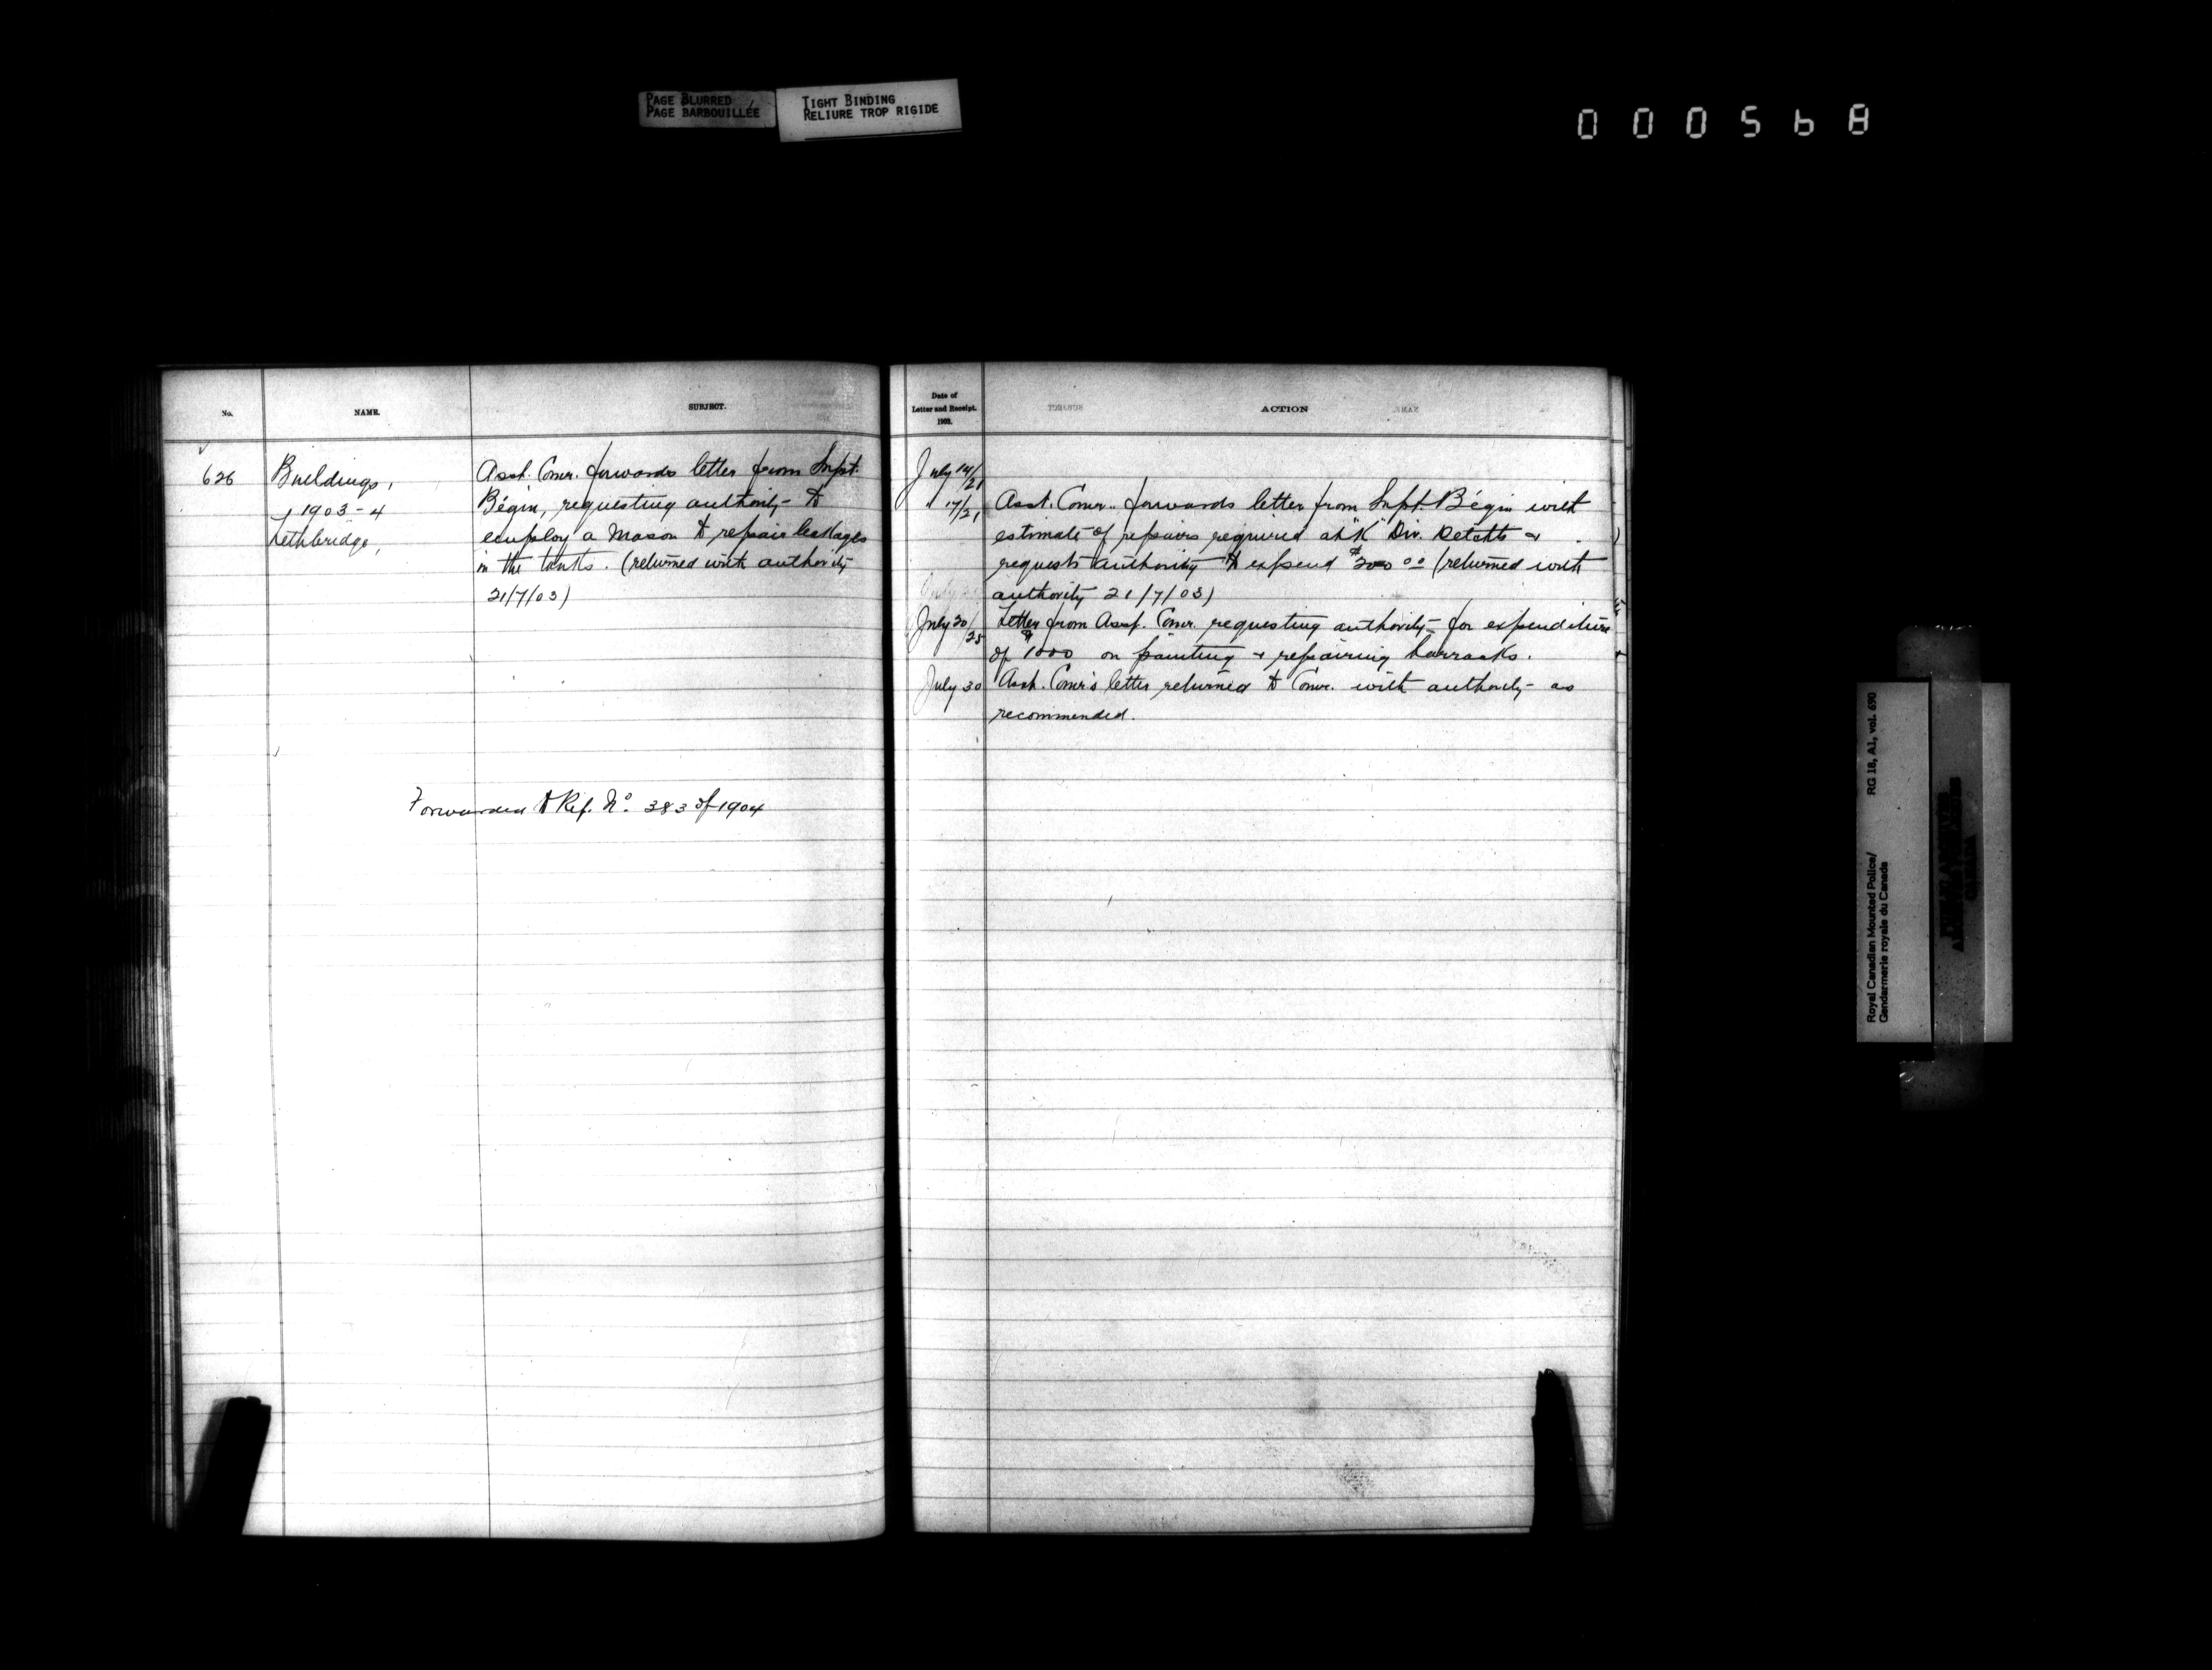 PAGE BLURRED
PAGE BARBOUILLÉE
TIGHT BINDING
RELIURE TROP RIGIDE
000568
No.
NAME.
SUBJECT.
626
Buildings,
1903-4
Lethbridge,
Asst. Comr. forwards letter from Supt.
Bégin, requesting authority to
employ a Mason to repair leakages
in the tanks. (returned with authority
21/7/03)
Forwarded to Ref. No. 383 of 1904
Date of
Letter and Receipt.
1903.
ACTION
July 14/21
" 17/21 Asst. Comr. forwards letter from Supt. Bégin with
estimate of repairs required at "K" Div. Detatts &
requests authority to expend $300 00 (returned with
authority 21/7/03)
July 20/25 Letter from Asst. Comr. requesting authority for expenditure
of $1000 on painting & repairing barracks.
July 30 Asst. Comr's letter returned to Comr. with authority as
recommended.
RG 18, A1, vol. 690
Royal Canadian Mounted Police/
Gendarmerie royale du Canada